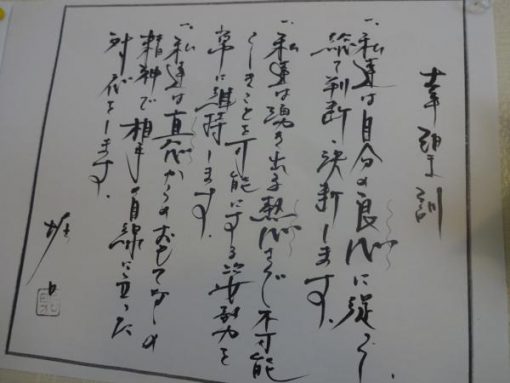 一、私達は自分の良心に従い、
総て判断決断します。
一、私達は湧き出る熱心さで不可能
らしきことを可能にする努力を
常に維持します。
一、私達は真心からのおもてなしの
精神で相手の目線に立った
対応をします。